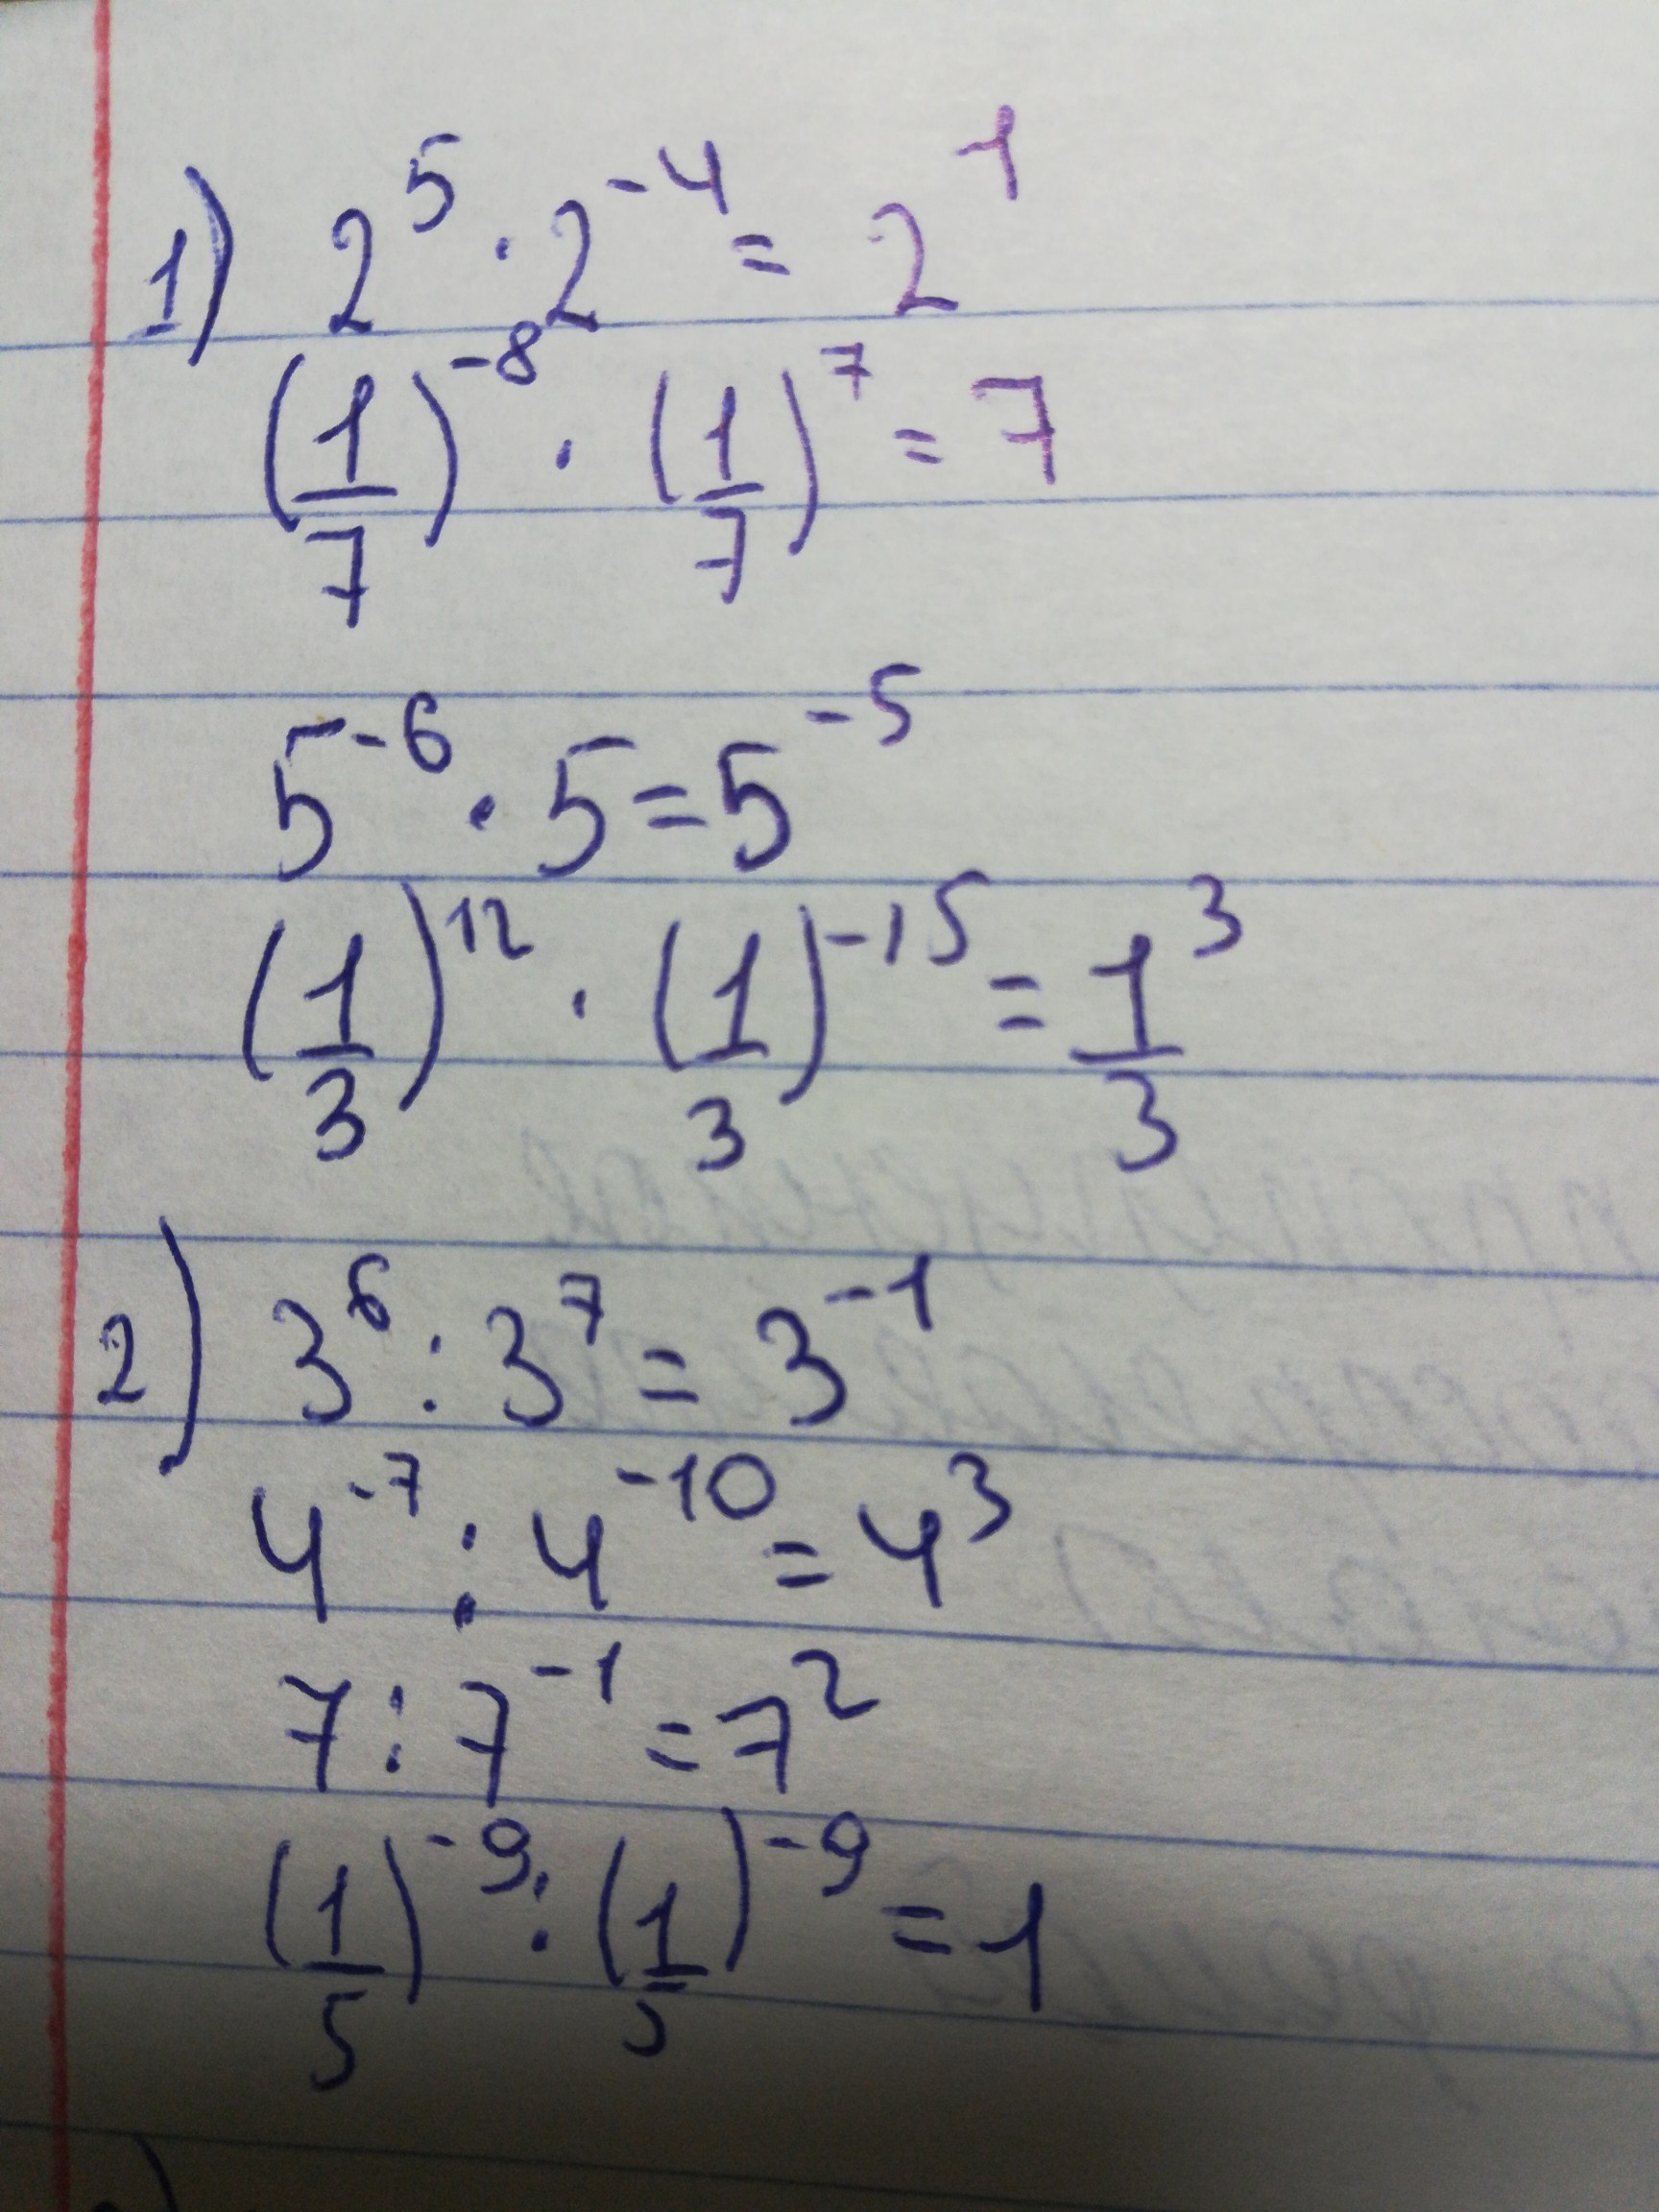 1) 2⁵ · 2⁻⁴ = 2¹
(1/7)⁻⁸ · (1/7)⁷ = 7
5⁻⁶ · 5 = 5⁻⁵
(1/3)¹² · (1/3)⁻¹⁵ = 1³/3
2) 3⁶ : 3⁷ = 3⁻¹
4⁻⁷ : 4⁻¹⁰ = 4³
7 : 7⁻¹ = 7²
(1/5)⁻⁹ : (1/5)⁻⁹ = 1